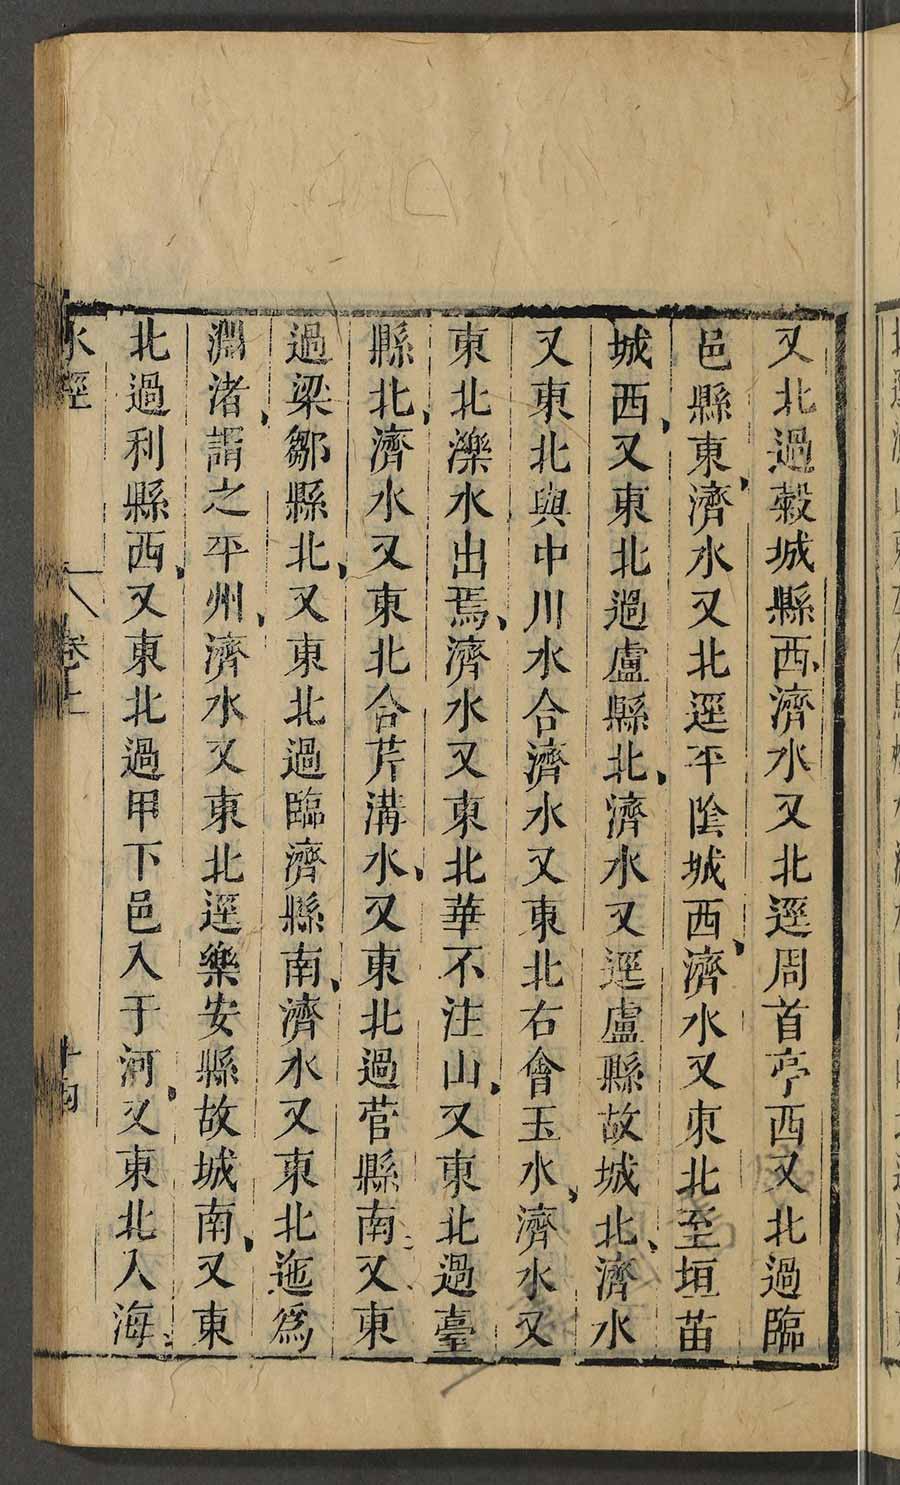 又北過穀城縣西、濟水又北逕周首亭西又北過臨
邑縣東、濟水又北逕平陰城西、濟水又東北至垣苗
城西、又東北過盧縣北、濟水又逕盧縣故城北、濟水
又東北與中川水合濟水又東北右會玉水、濟水又
東北濼水出焉、濟水又東北華不注山、又東北過臺
縣北、濟水又東北合芹溝水、又東北過菅縣南、又東
過梁鄒縣北、又東北過臨濟縣南、濟水又東北迤爲
淵渚、謂之平州、濟水又東北逕樂安縣故城南、又東
北過利縣西、又東北過甲下邑入于河、又東北入海、
水經 卷上 十四